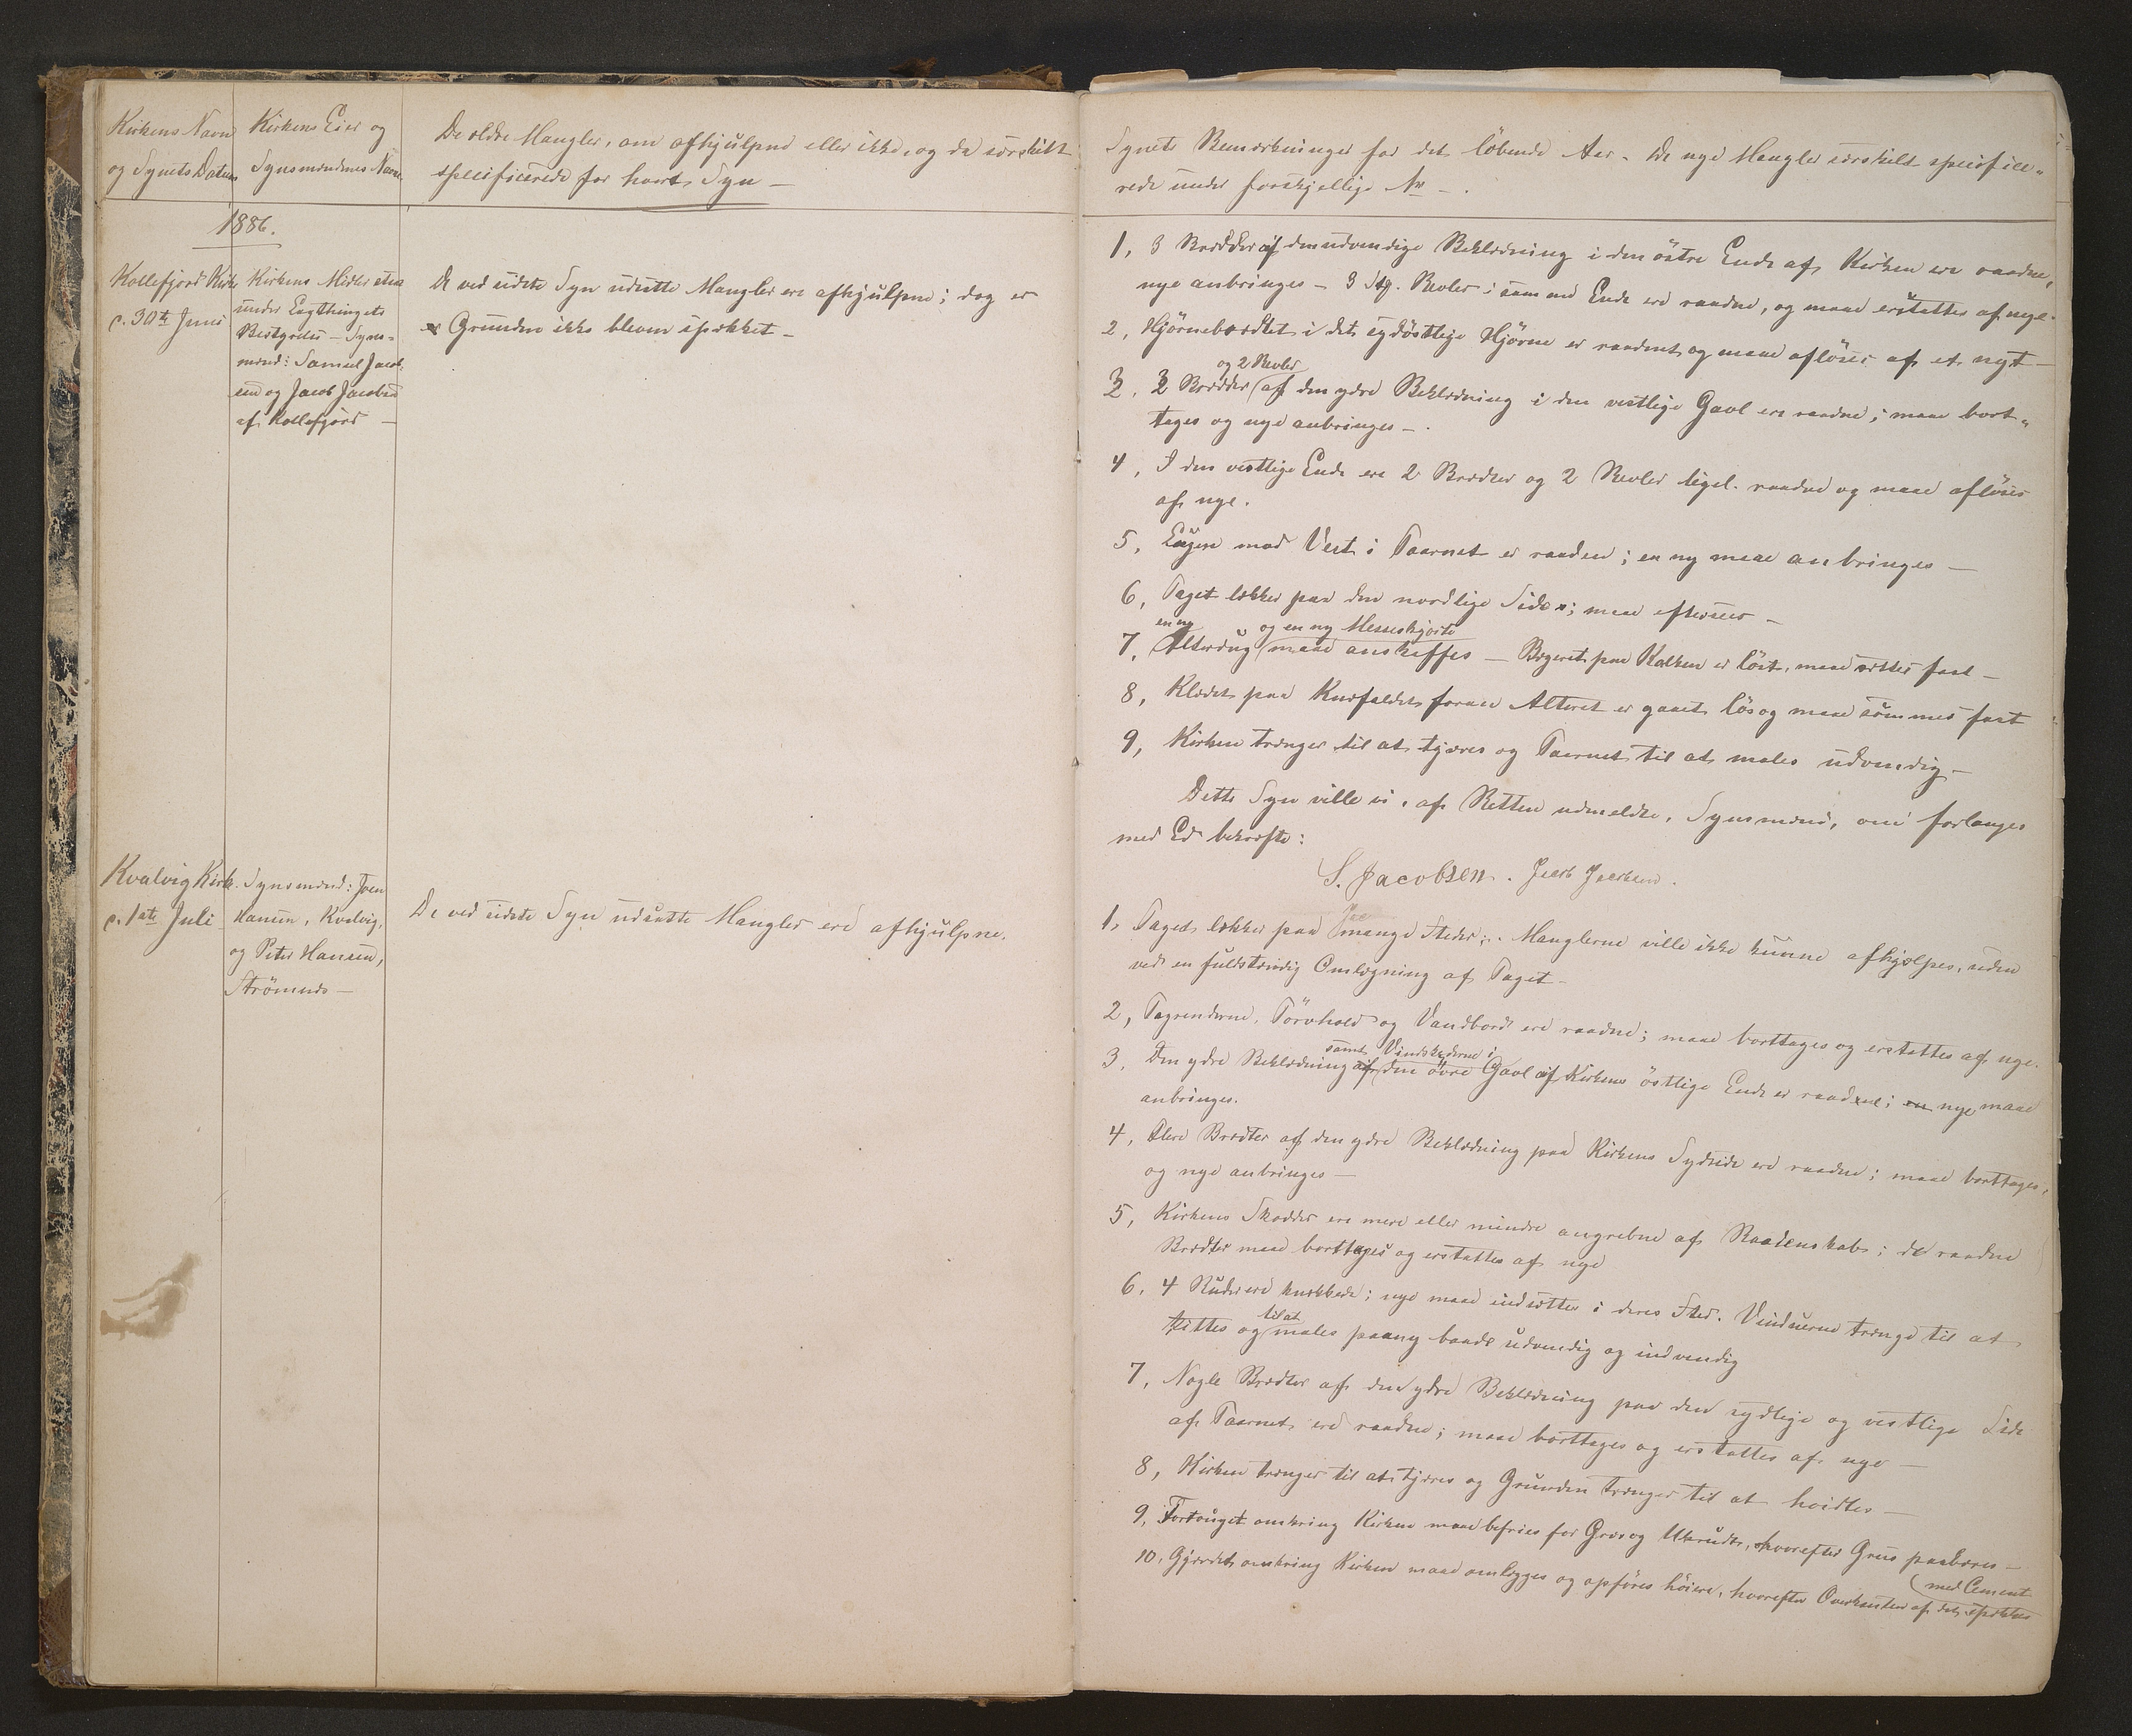 Kirkens Navn
og Synets Datum
Kirkens Eier og
Synsmændenes Navne
De ældre Mangler, om afhjulpne eller ikke, og da særskilt
specificerede for hvert Syn —
1886.
Kollefjord Kirke
d. 30te Juni
Kirkens Midler staae
under Lagthingets
Bestyrelse — Syns-
mænd: Samuel Jacob-
sen og Jacob Jacobsen
af Kollefjord —
De ved sidste Syn udsatte Mangler ere afhjulpne; dog er
Grunden ikke bleven spækket —
Kvalvig Kirke
d. 1ste Juli
Synsmænd: Joen
Hansen, Kvalvig,
og Peter Hansen,
Strömnæs —
De ved sidste Syn udsatte Mangler ere afhjulpne.
Synets Bemærkninger for det löbende Aar. De nye Mangler særskilt specifice-
rede under forskjellige Nr —.
1, 3 Brædder af den udvendige Beklædning i den östre Ende af Kirken ere raadne,
nye anbringes — 3 Stk. Revler i samme Ende ere raadne, og maae erstattes af nye.
2, Hjörnebrædtet i det sydöstlige Hjörne er raadent og maae aflöses af et nyt —
og 2 Revler
3. 2 Brædder af den ydre Beklædning i den vestlige Gavl ere raadne; maae bort-
tages og nye anbringes —.
4, I den vestlige Ende ere 2 Brædter og 2 Revler ligel. raadne og maae aflöses
af nye.
5, Lugen mod Vest i Taarnet er raaden; en ny maae anbringes —
6, Taget lækker paa den nordlige Side; maae efterseees —
en ny og en ny Messeskjorte
7, Alterdug maae anskaffes — Bægeret paa Kalken er löst, maae sættes fast —
8, Klædet paa Knæfaldet foran Alteret er gaaet lös og maae sömmes fast
9, Kirken trænger til at tjæres og Taarnet til at males udvendig —
Dette Syn ville vi, af Retten udmeldte, Synsmænd, om forlanges
med Ed bekræfte:
S. Jacobsen. Jacob Jacobsen.
1, Taget lækker paa mange Steder; Manglerne ville ikke kunne afhjelpes, uden
ved en fuldstændig Omlægning af Taget —
2, Tagrenderne, Törvhold og Vandbord ere raadne; maae borttages og erstattes af nye.
samt Vindskederne i
3. Den ydre Beklædning af den övre Gavl af Kirkens östlige Ende er raadne; en nye maae
anbringes.
4, Flere Brædter af den ydre Beklædning paa Kirkens Sydside ere raadne; maae borttages,
og nye anbringes —
5, Kirkens Skodder ere mere eller mindre angrebne af Raadenskab; de raadne
Brædter maae borttages og erstattes af nye
6, 4 Ruder ere knækkede; nye maae indsættes i deres Sted. Vinduerne trænge til at
til at
kittes og males paany baade udvendig og indvendig
7, Nogle Brædter af den ydre Beklædning paa den sydlige og vestlige Side
af Taarnet ere raadne; maae borttages og erstattes af nye —
8, Kirken trænger til at tjæres og Grunden trænger til at hvidtes —
9, Fortouget omkring Kirken maae befries for Græs og Ukrudt, hvorefter Grus paabæres —
10, Gjærdet omkring Kirken maae omlægges og opföres höiere, hvorefter Overkanten af det spækkes
med Cement